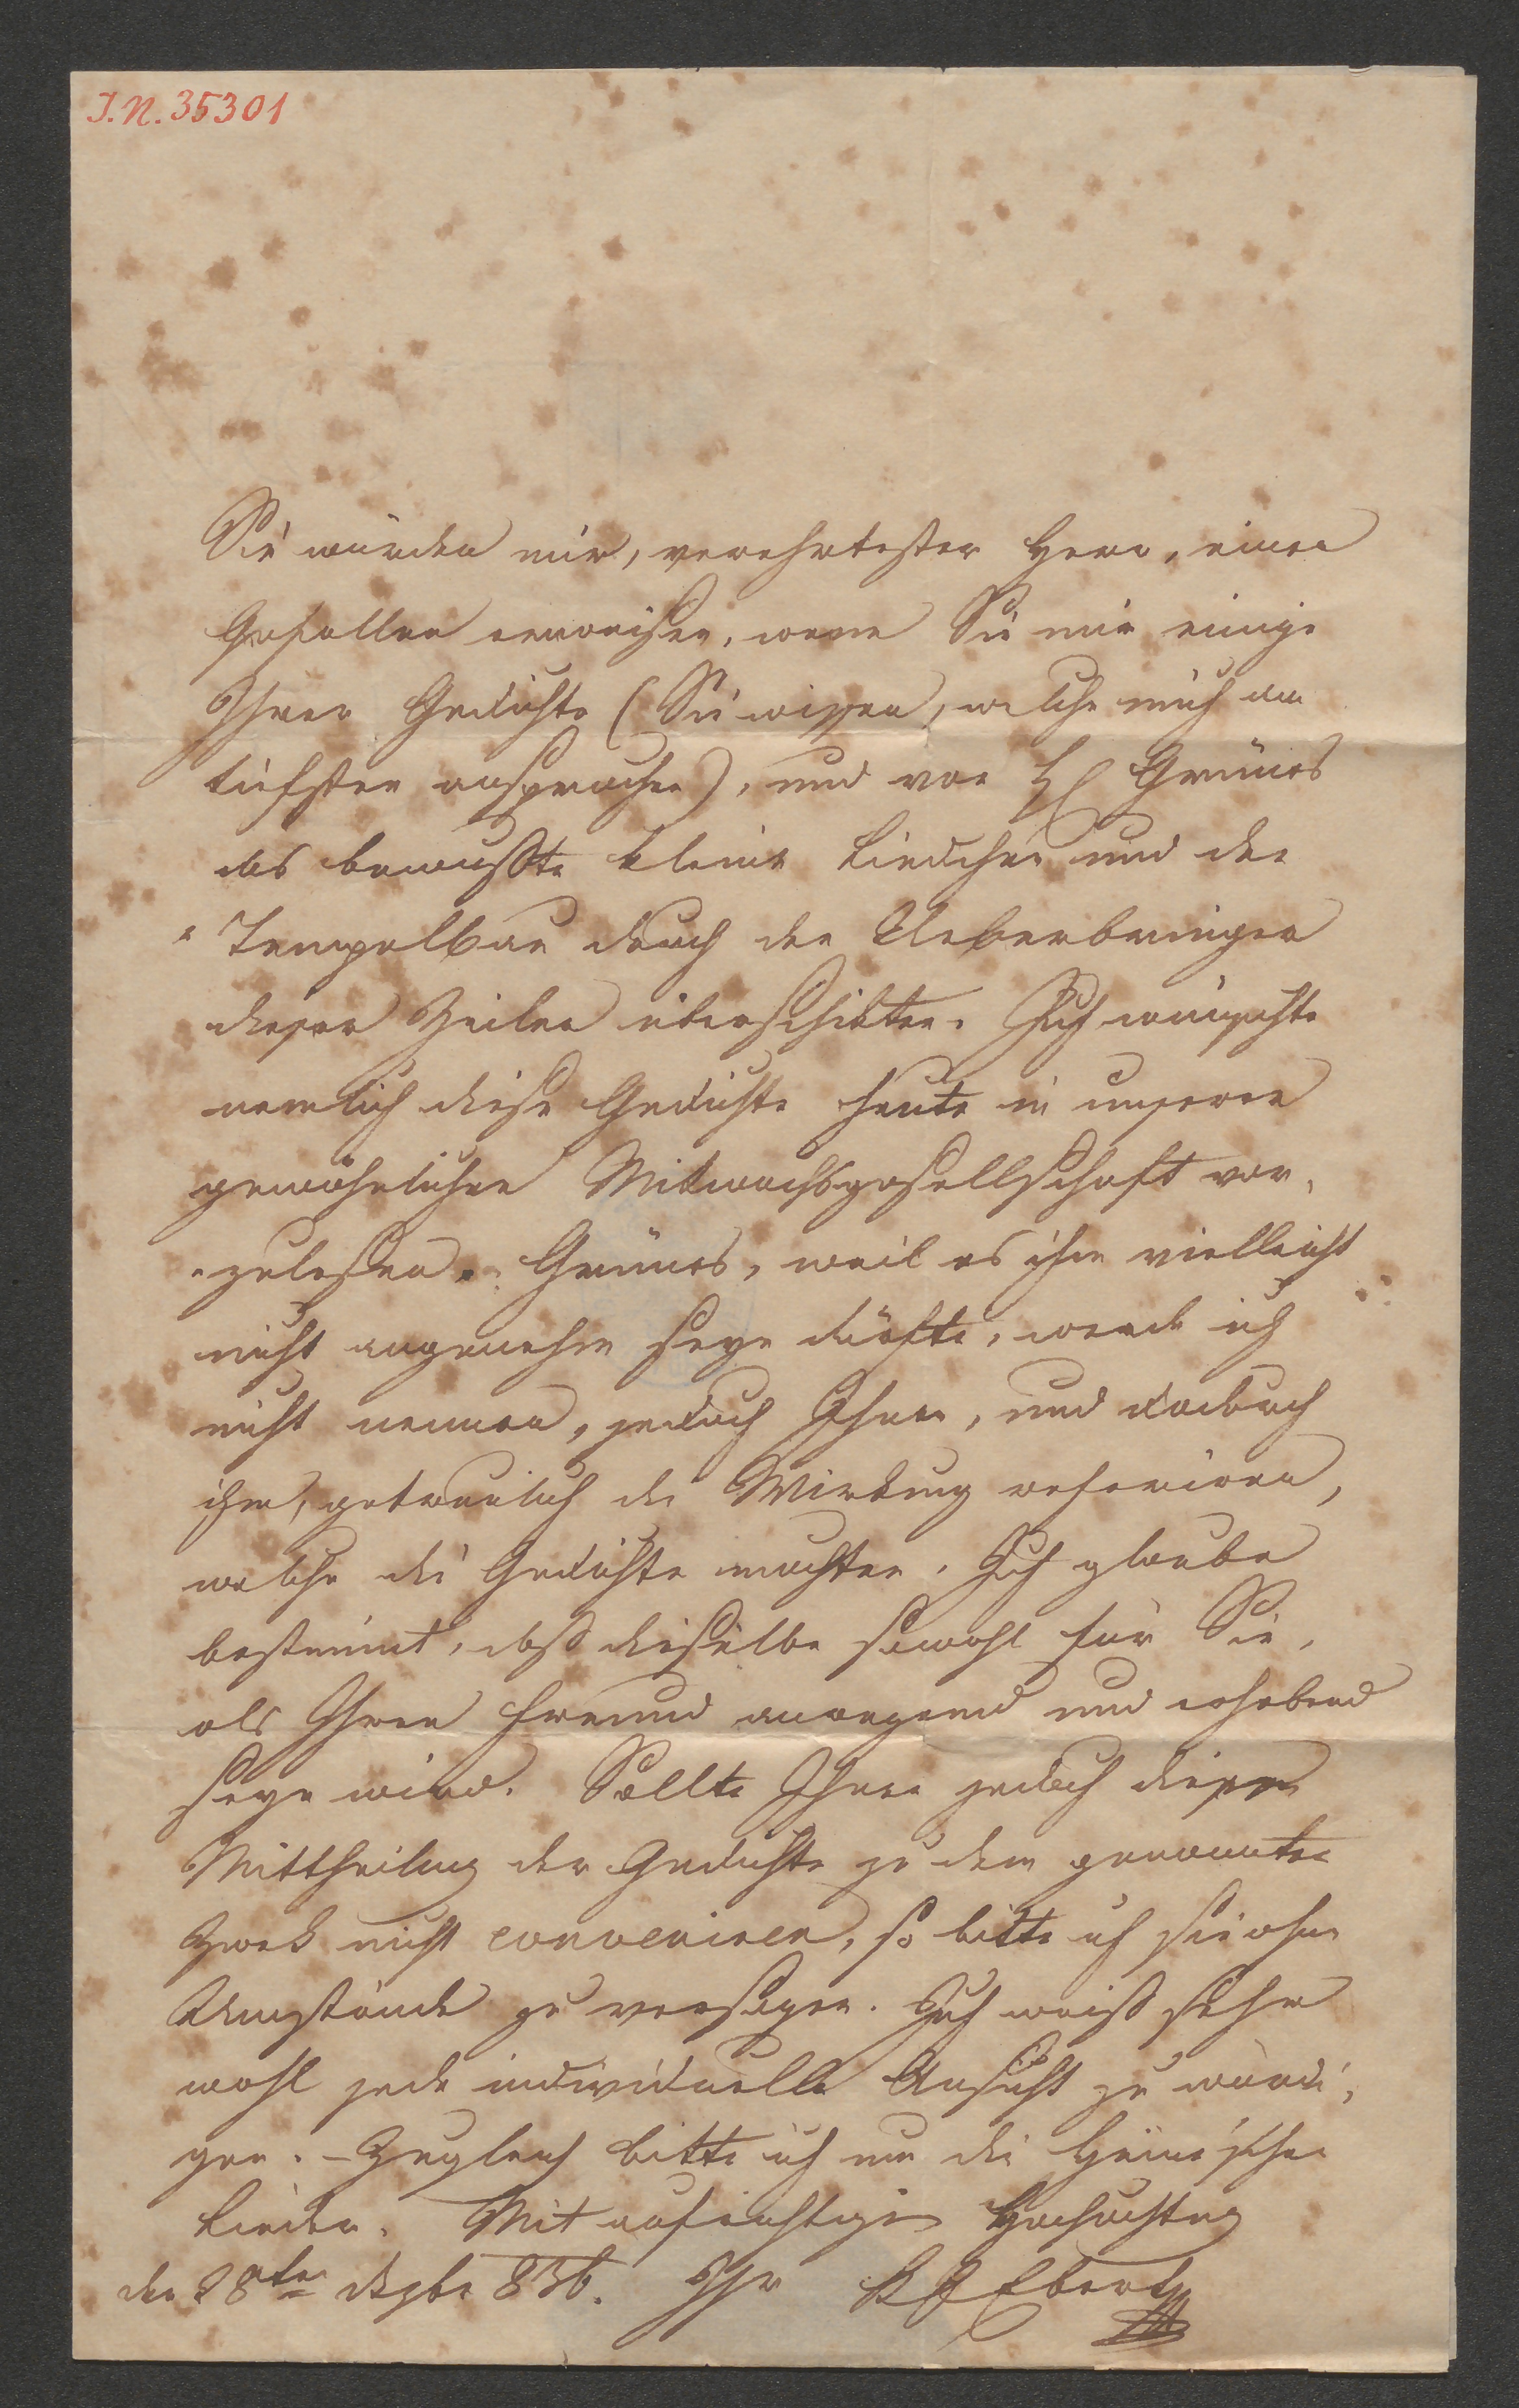 I.N. 35301
Sie würden mir, verehrtester Herr, einen
Gefallen erweisen, wenn Sie mir einige
Ihrer Gedichte (Sie wissen, welche mich am
tiefsten ansprachen), und von H Grünes
das bewußte kleine Liedchen und den
Tempelbau durch den Ueberbringer
dieser Zeilen überschickten. Ich wünschte
nemlich diese Gedichte heute in unserer
gewöhnlichen Mittwochsgesellschaft vor-
-zulesen. Grünes, weil es ihm vielleicht
nicht angenehm seyn dürfte, werde ich
nicht nennen, jedoch Ihnen, und dadurch
ihm, getreulich die Wirkung referiren,
welche die Gedichte machten. Ich glaube
bestimmt, daß dieselbe sowohl für Sie,
als Ihren Freund anregend und erhebend
seyn wird. Sollte Ihnen jedoch diese
Mittheilung der Gedichte zu dem genannten
Zweck nicht conveniren, so bitte ich sie ohne
Umstände zu versagen. Ich weiß sehr
wohl jede individuelle Ansicht zu würdi-
gen. – Zugleich bitte ich um die Heine'schen
Lieder. Mit aufrichtiger Hochachtung
den 28ten Dezbr 836. Ihr K E Ebert